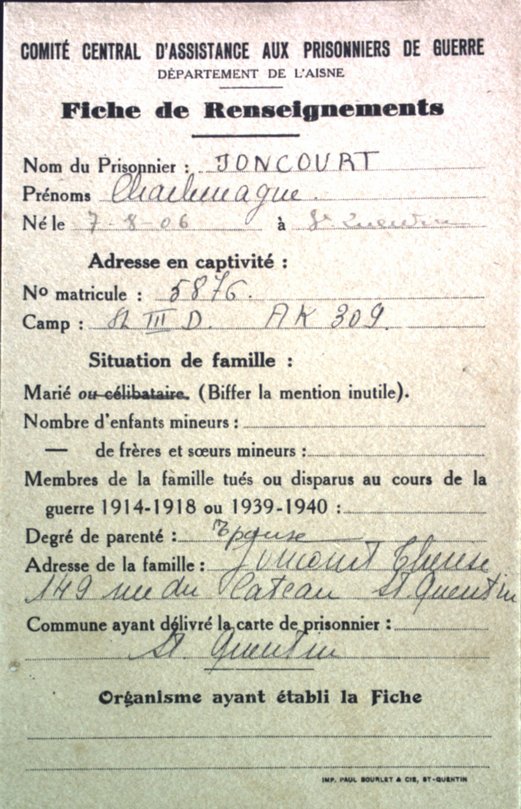 COMITÉ CENTRAL D'ASSISTANCE AUX PRISONNIERS DE GUERRE
DÉPARTEMENT DE L'AISNE
Fiche de Renseignements
Nom du Prisonnier : JONCOURT
Prénoms Charlemagne.
Né le 7-8-06 à St Quentin
Adresse en captivité :
No matricule : 5876.
Camp : St III D. AK 309.
Situation de famille :
Marié ou célibataire. (Biffer la mention inutile).
Nombre d'enfants mineurs :
— de frères et sœurs mineurs :
Membres de la famille tués ou disparus au cours de la
guerre 1914-1918 ou 1939-1940 :
Degré de parenté : Epouse
Adresse de la famille : Joncourt Therese
149 rue du Cateau St Quentin
Commune ayant délivré la carte de prisonnier :
St. Quentin
Organisme ayant établi la Fiche
IMP. PAUL BOURLET & CIE, ST-QUENTIN